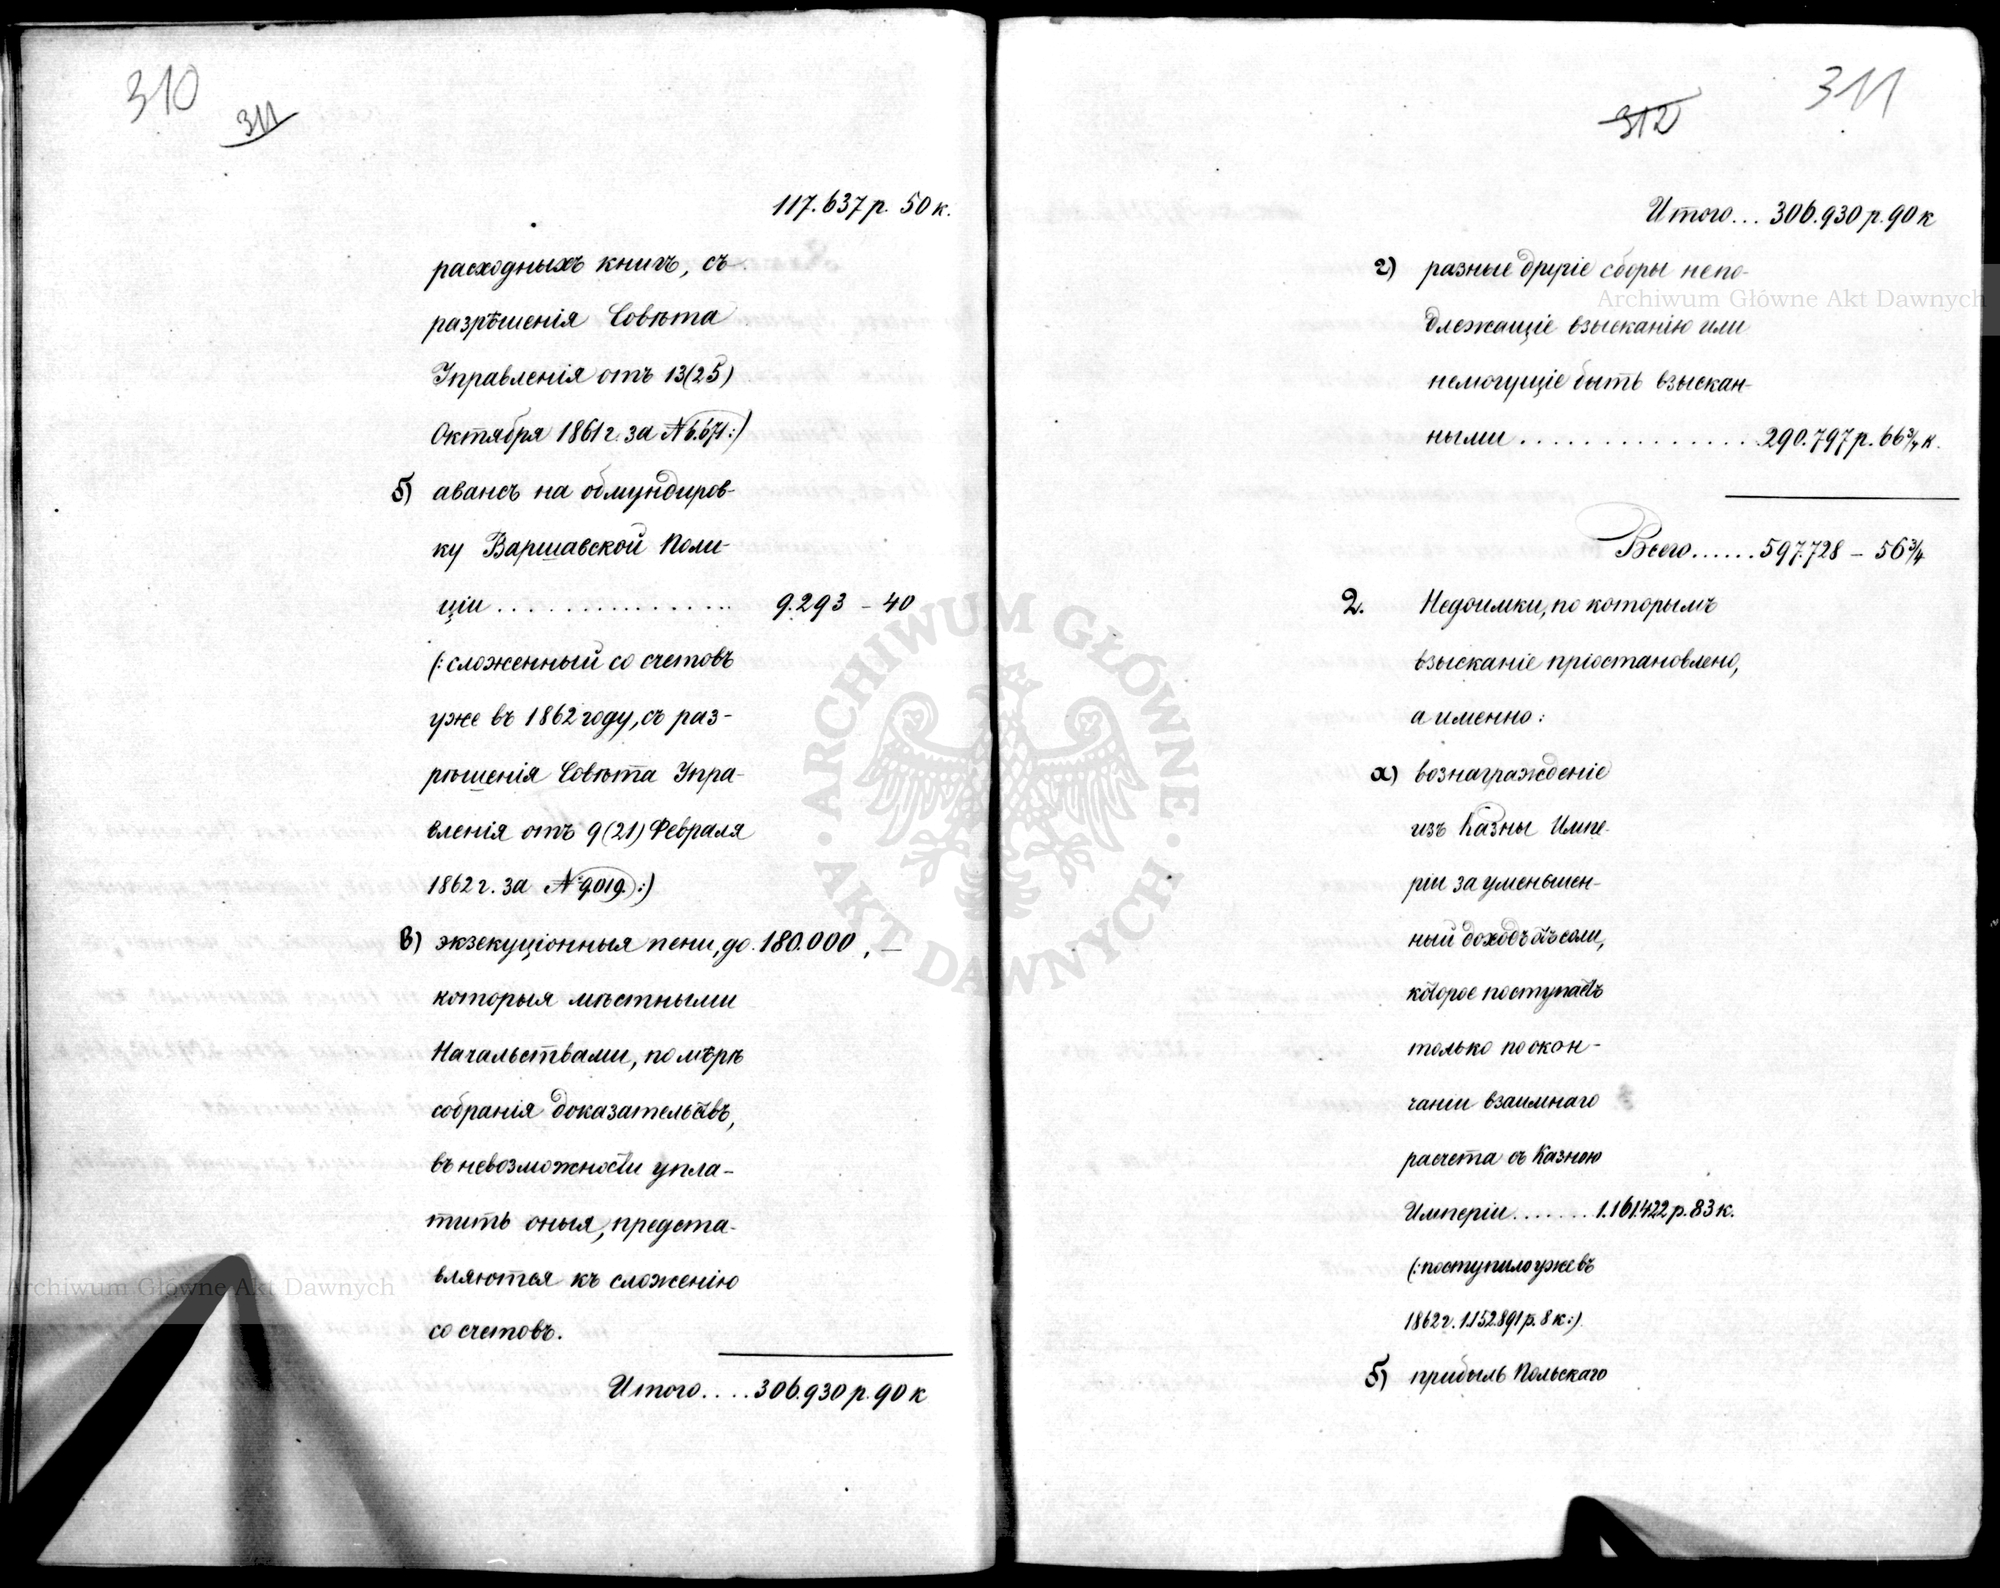 310
311
117.637 р. 50 к.
расходныхъ книгъ, съ
разрѣшенія Совѣта
Управленія отъ 13(25)
Октября 1861 г. за № 6.671:)
б) авансъ на обмундиров-
ку Варшавской Поли-
ціи . . . . . . . . . . . . . . . 9.293 – 40
(:сложенный со счетовъ
уже въ 1862 году, съ раз-
рѣшенія Совѣта Упра-
вленія отъ 9(21) Февраля
1862 г. за № 9.019.:)
в) экзекуціонныя пени, до 180.000 , —
которыя мѣстными
Начальствами, по мѣрѣ
собранія доказательствъ,
въ невозможности упла-
тить оныя, предста-
вляются къ сложенію
со счетовъ.
Итого.... 306.930 р. 90 к
311
312
Итого... 306.930 р. 90 к
г) разные другіе сборы непо-
длежащіе взысканію или
немогущіе быть взыскан-
ными . . . . . . . . . . . . . . . 290.797 р. 66 3/4 к.
Всего...... 597.728 – 56 3/4
2. Недоимки, по которымъ
взысканіе пріостановлено,
а именно:
а) вознагражденіе
изъ Казны Импе-
ріи за уменьшен-
ный доходъ отъ соли,
которое поступаетъ
только по окон-
чаніи взаимнаго
расчета съ Казною
Имперіи....... 1.161.422 р. 83 к.
(:поступило уже въ
1862 г. 1.152.891 р. 8 к:).
б) прибыль Польскаго
Archiwum Główne Akt Dawnych
Archiwum Główne Akt Dawnych
ARCHIWUM GŁÓWNE · AKT DAWNYCH ·